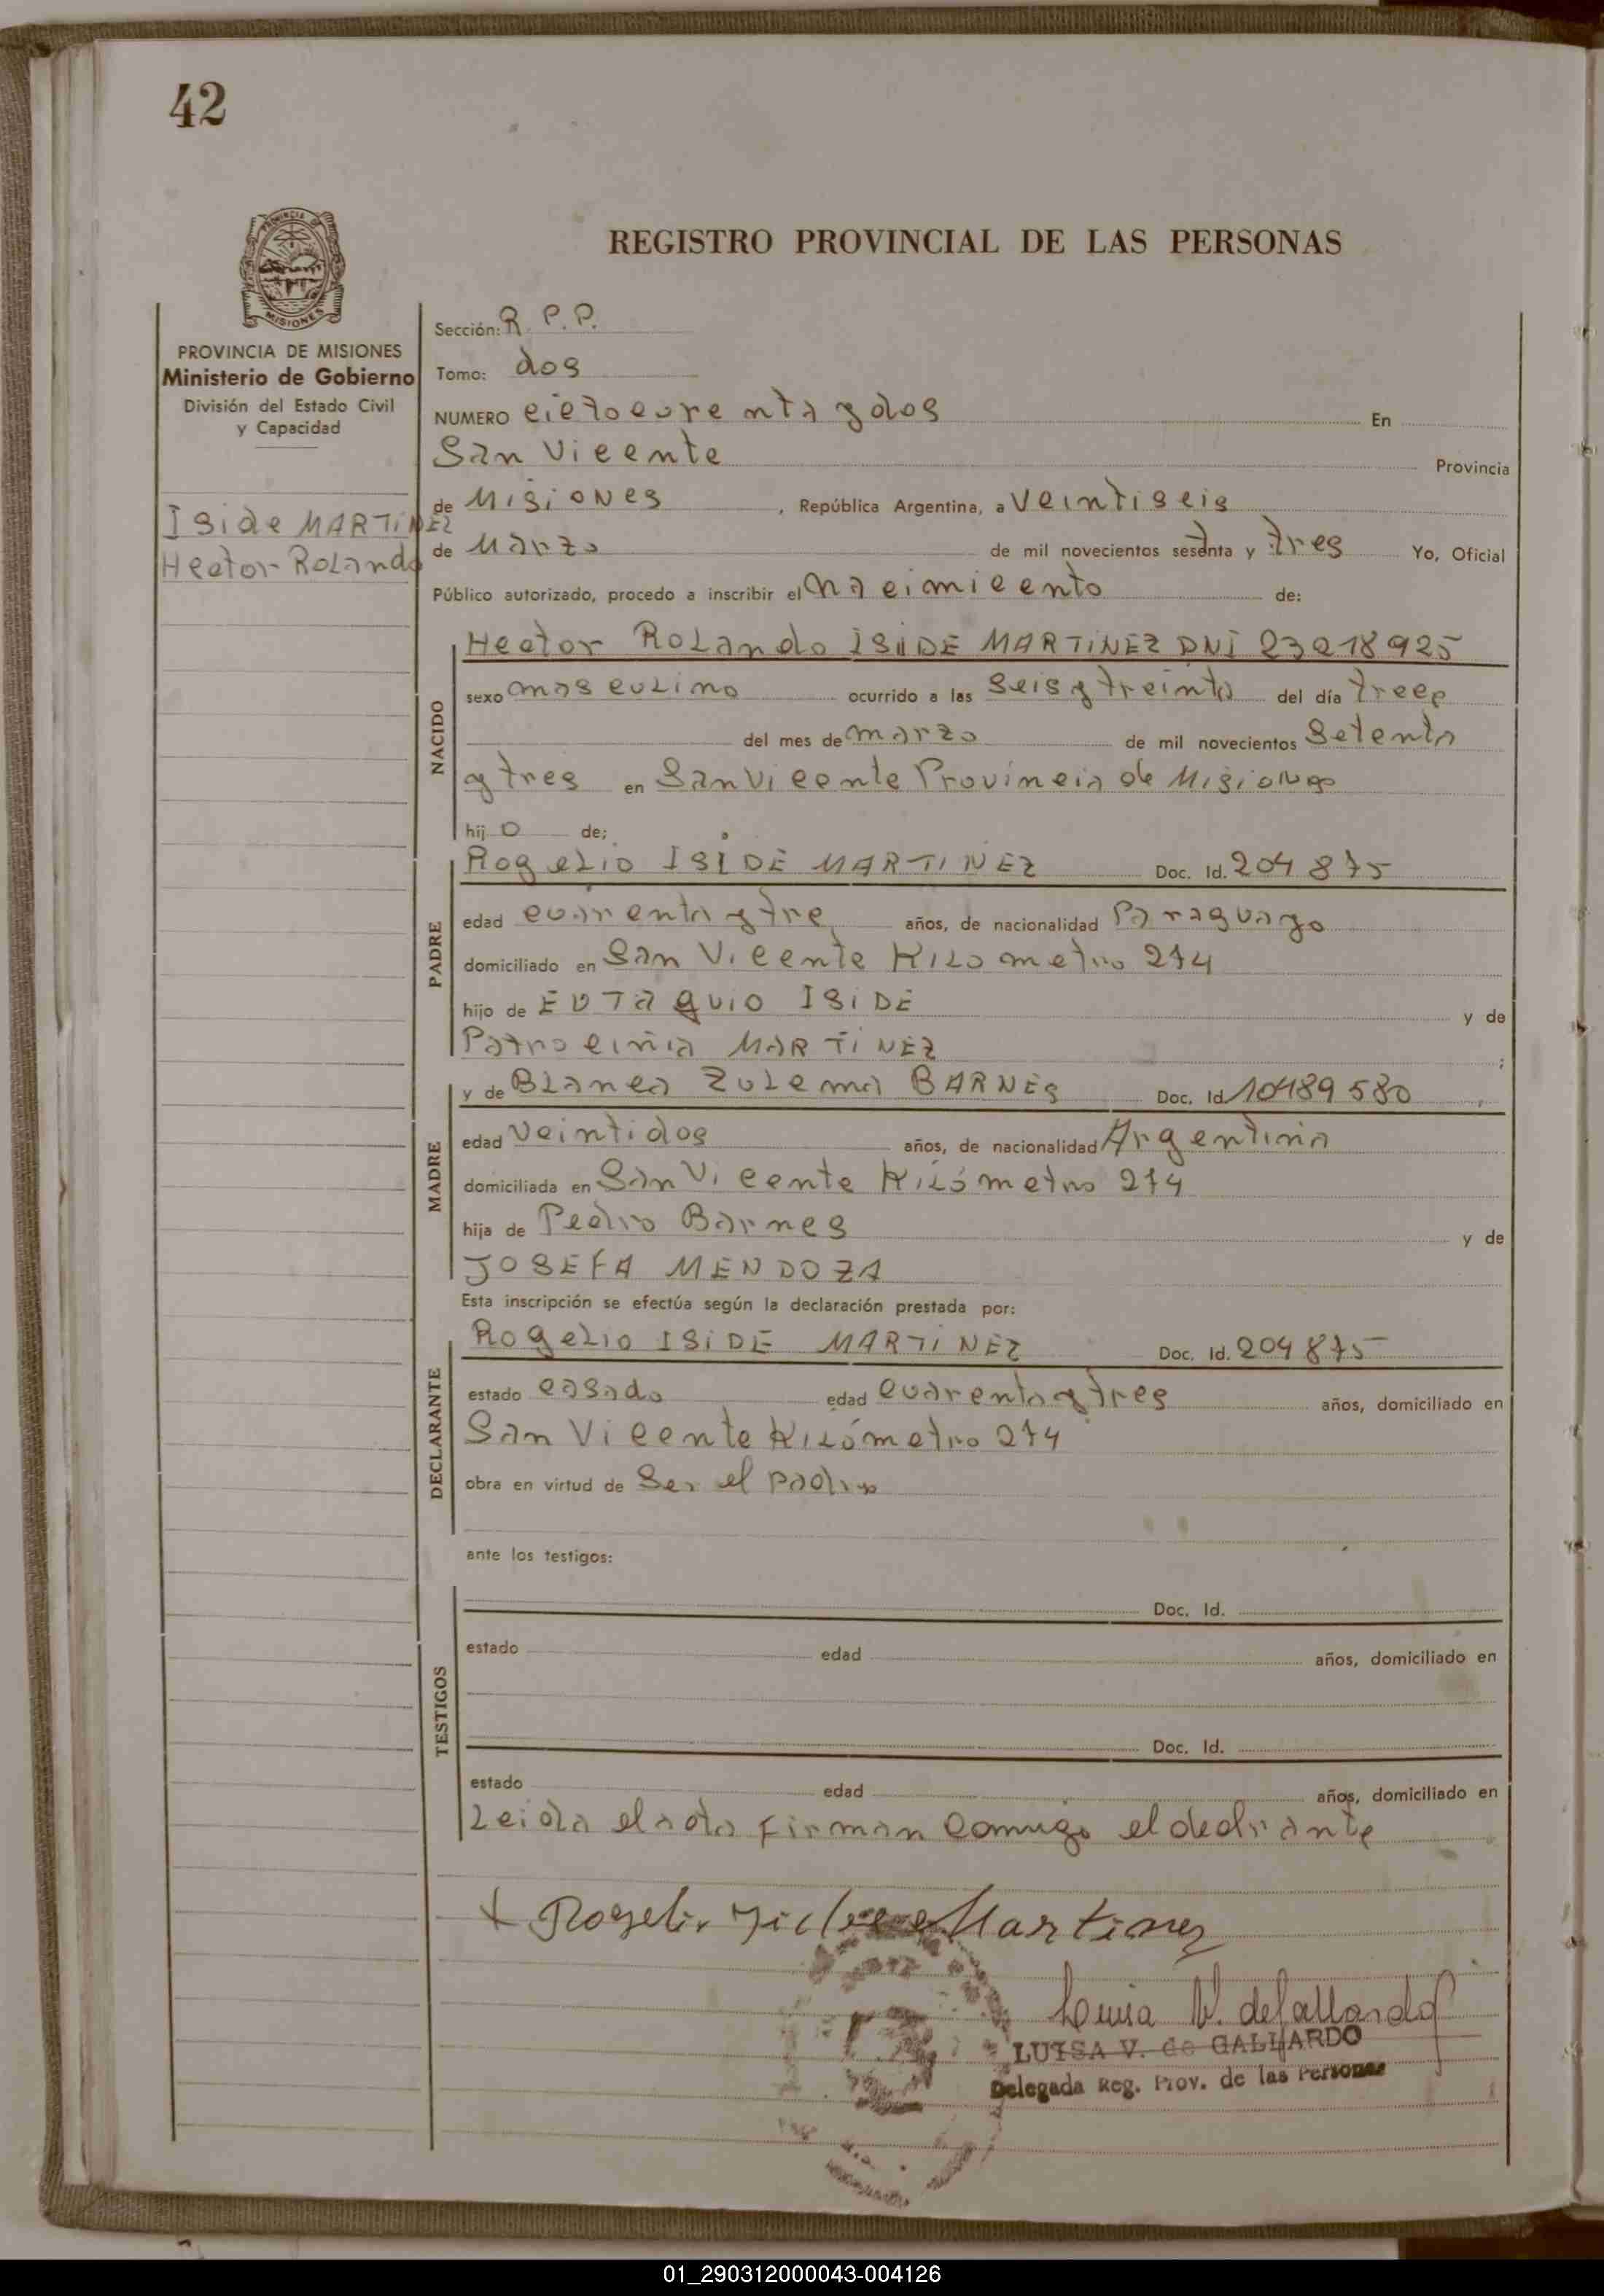 42
PROVINCIA DE MISIONES
REGISTRO PROVINCIAL DE LAS PERSONAS
PROVINCIA DE MISIONES
Ministerio de Gobierno
División del Estado Civil
y Capacidad
Iside MARTINEZ
Hector Rolando
Sección: R. P. P.
Tomo: dos
NUMERO cietocurenta y dos En
San Vicente Provincia
de Misiones , República Argentina, a veintiseis
de Marzo de mil novecientos setenta y tres Yo, Oficial
Público autorizado, procedo a inscribir el nacimiento de:
NACIDO
Hector Rolando ISIDE MARTINEZ DNI 23218925
sexo masculino ocurrido a las seis y treinta del día trece
del mes de marzo de mil novecientos setenta
y tres en San Vicente Provincia de Misiones
hij o de;
PADRE
Rogelio ISIDE MARTINEZ Doc. Id. 204 875
edad cuarenta y tre años, de nacionalidad Paraguayo
domiciliado en San Vicente Kilometro 274
hijo de EUTAQUIO ISIDE y de
Patrocinia MARTINEZ ;
MADRE
y de Blanca Zulema BARNES Doc. Id 10189580 ,
edad veintidos años, de nacionalidad Argentina
domiciliada en San Vicente Kilómetro 274
hija de Pedro Barnes y de
JOSEFA MENDOZA
Esta inscripción se efectúa según la declaración prestada por:
DECLARANTE
Rogelio ISIDE MARTINEZ Doc. Id. 204 875
estado casado edad cuarenta y tres años, domiciliado en
San Vicente Kilómetro 274
obra en virtud de Ser el padre
ante los testigos:
TESTIGOS
Doc. Id.
estado edad años, domiciliado en
Doc. Id.
estado edad años, domiciliado en
Leida el acta firman comigo el
Rogelio Martinez
Luisa V. de Gallardo
LUISA V. de GALLARDO
Delegada Reg. Prov. de las Personas
01_290312000043-004126